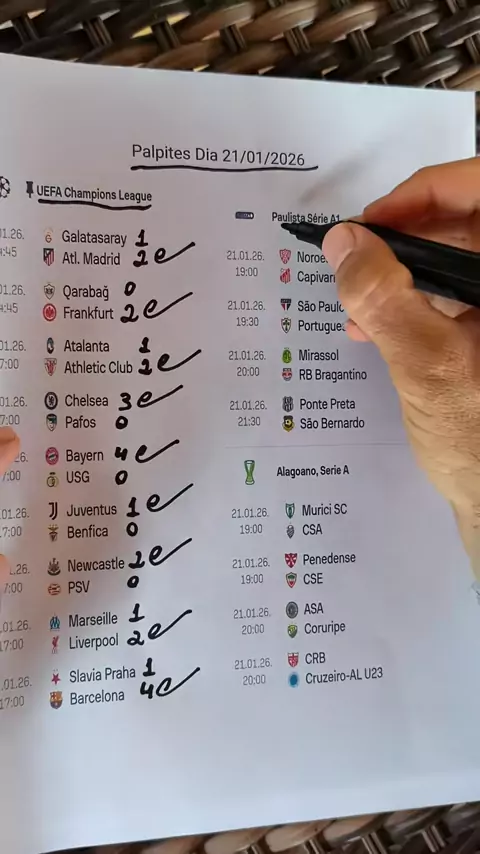 Palpites Dia 21/01/2026
UEFA Champions League
01.26.
Galatasaray 1
Atl. Madrid 2
Qarabağ 0
Frankfurt 2
Atalanta 1
Athletic Club 2
Chelsea 3
Pafos 0
Bayern 4
USG 0
Juventus 1
Benfica 0
Newcastle 2
PSV 0
Marseille 1
Liverpool 2
Slavia Praha 1
Barcelona 4
Paulista Série A1
21.01.26.
19:00
São Paulo
21.01.26.
19:30
21.01.26.
20:00
Mirassol
RB Bragantino
21.01.26.
21:30
Ponte Preta
São Bernardo
Alagoano, Serie A
21.01.26.
19:00
Murici SC
CSA
21.01.26.
19:00
Penedense
CSE
21.01.26.
20:00
ASA
Coruripe
21.01.26.
20:00
CRB
Cruzeiro-AL U23